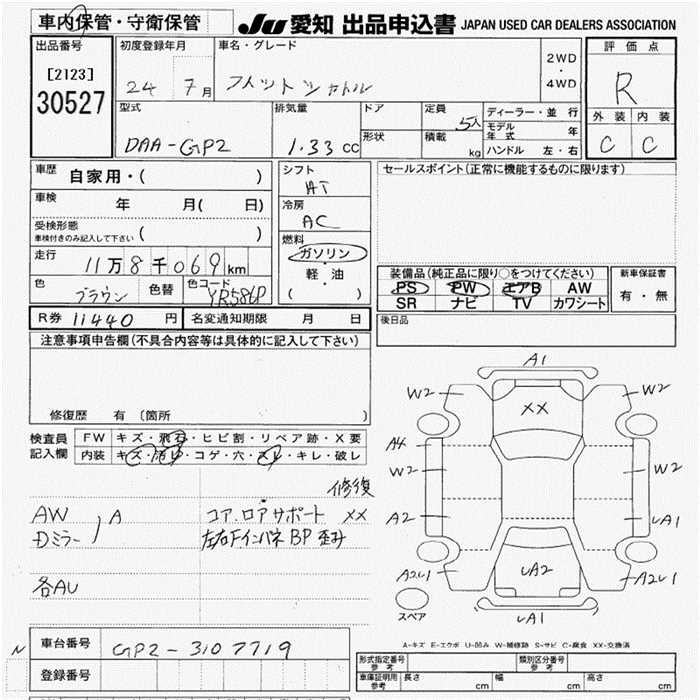 車内保管・守衛保管
JU 愛知 出品申込書 JAPAN USED CAR DEALERS ASSOCIATION
出品番号
[2123]
30527
初度登録年月
24 7月
車名・グレード
フィットシャトル
2WD
・
4WD
評価点
R
外装 内装
C C
型式
DAA-GP2
排気量
1.33 cc
ドア
形状
定員
5人
積載
kg
ディーラー・並行
モデル年式 年
ハンドル 左・右
車歴
自家用・( )
車検 年 月( 日)
受検形態
車検付きのみ記入して下さい ( )
走行 11万8千069km
色 ブラウン 色替 色コード YR586P
シフト
AT
冷房
AC
燃料
ガソリン
・
軽・油
( )
セールスポイント(正常に機能するものに限ります)
装備品(純正品に限り○をつけてください)
PS PW エアB AW
SR ナビ TV カワシート
新車保証書
有・無
R券 11440 円 名変通知期限 月 日
後日品
注意事項申告欄(不具合内容等は具体的に記入して下さい)
修復歴 有 〔箇所 〕
検査員
記入欄
FW キズ・飛石・ヒビ割・リペア跡・X要
内装 キズ・汚レ・コゲ・穴・スレ・キレ・破レ
修復
AW
Dミラー
A
コア.ロアサポート XX
左右Fインパネ BP 歪み
各AU
A1
W2
W2
XX
A4
W2
W2
A2
UA1
A2U1
UA2
A2U1
スペア
UA1
A-キズ E-エクボ U-凹み W-補修跡 S-サビ C-腐食 XX-交換済
N
車台番号 GP2-3107719
登録番号
形式指定番号
参考
類別区分番号
参考
車庫証明用
参考
長さ cm 幅 cm 高さ cm